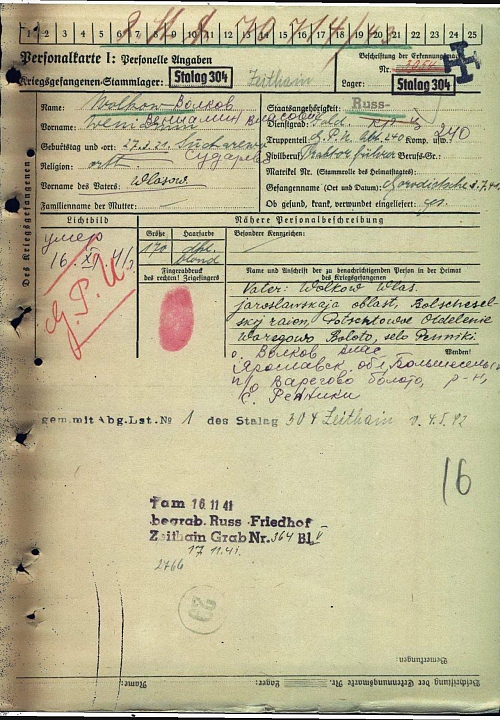 1 2 3 4 5 6 7 8 9 10 11 12 13 14 15 16 17 18 19 20 21 22 23 24 25
Personalkarte I: Personelle Angaben
Kriegsgefangenen-Stammlager: Stalag 304 Zeithain
Beschriftung der Erkennungsmarke
Nr.
Lager: Stalag 304
Des Kriegsgefangenen
Name: Wolkow Волков
Vorname: Вениамин Власович
Geburtstag und -ort: 27.2.21. Сударево
Religion: orth.
Vorname des Vaters: Wlasow
Familienname der Mutter:
Staatsangehörigkeit: Russ-
Dienstgrad: Sold.
Truppenteil: 240 Komp. usw.
Zivilberuf: Traktorführer Berufs-Gr.:
Matrikel Nr. (Stammrolle des Heimatstaates):
Gefangennahme (Ort und Datum):
Ob gesund, krank, verwundet eingeliefert: ges.
Lichtbild
умер
16. XI 41
Nähere Personalbeschreibung
Größe Haarfarbe Besondere Kennzeichen:
170 dkl. blond
Fingerabdruck
des rechten! Zeigefingers
Name und Anschrift der zu benachrichtigenden Person in der Heimat
des Kriegsgefangenen
Vater: Wolkow Wlas.
Jaroslawskaja oblast, Bolscheselskij raion,
Waregowo Boloto, selo Renniki
Wenden!
о. Волков Влас
Ярославск. обл. Большесельск.
п/о Варегово болото, р-н,
с. Ренники
gem. mit Abg. Lst. № 1 des Stalag 304 Zeithain v. 4.I.42
16
† am 16.11 41
begrab. Russ Friedhof
Zeithain Grab Nr. 364 Bl. V
17.11.41.
2466
Bemerkungen:
Beschriftung der Erkennungsmarke Nr. Lager: Name: